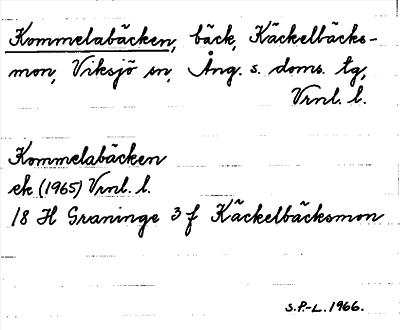 Kommelabäcken, bäck, Käckelbäcks-
mon, Viksjö sn, Ång. s. doms. tg,
Vrnl. l.
Kommelabäcken
ek (1965) Vrnl. l.
18 H Graninge 3 f Käckelbäcksmon
S.P.-L. 1966.